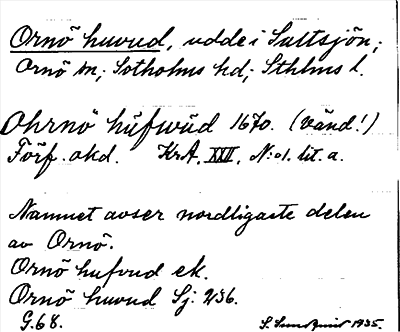 Ornö huvud, udde i Saltsjön;
Ornö sn; Sotholms hd; Sthlms l.
Ohrnö hüfwüd 1670. (vänd!)
Förf. okd. KrA. XXII, N:o1. lit. a.
Namnet avser nordligaste delen
av Ornö.
Ornö hufvud ek.
Ornö huvud Sj: 236.
G.68. S. Sundquist 1935.